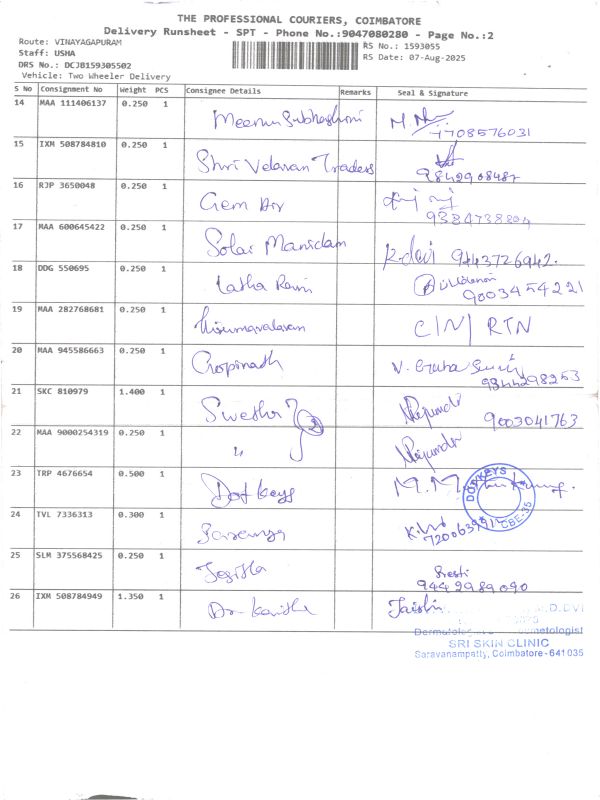 THE PROFESSIONAL COURIERS, COIMBATORE
Delivery Runsheet - SPT - Phone No.:9047080280 - Page No.:2
Route: VINAYAGAPURAM
RS No.: 1593055
Staff: USHA
RS Date: 07-Aug-2025
DRS No.: DCJB159305502
Vehicle: Two Wheeler Delivery
S No Consignment No Weight PCS Consignee Details Remarks Seal & Signature
14 MAA 111406137 0.250 1
7708576031
15 IXM 508784810 0.250 1 Shri Velavan Traders
9842908487
16 RJP 3650048 0.250 1 Gem
9384738804
17 MAA 600645422 0.250 1 Solai Manickam R.devi 9443726942.
18 DDG 550695 0.250 1 Latha Rani
9003454221
19 MAA 282768681 0.250 1 C/N/ RTN
20 MAA 945586663 0.250 1 Gopinath V.
9344298253
21 SKC 810979 1.400 1 Swetha
9003041763
22 MAA 9000254319 0.250 1 "
23 TRP 4676654 0.500 1 Dot Keys M.M
DOT KEYS
CBE-35
24 TVL 7336313 0.300 1
25 SLM 375568425 0.250 1
9442989090
26 IXM 508784949 1.350 1 Dr. Kavitha
M.D.DVL
Dermatologist Cosmetologist
SRI SKIN CLINIC
Saravanampatty, Coimbatore-641 035